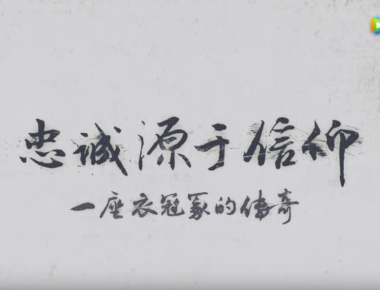 忠诚源于信仰
一座衣冠冢的传奇